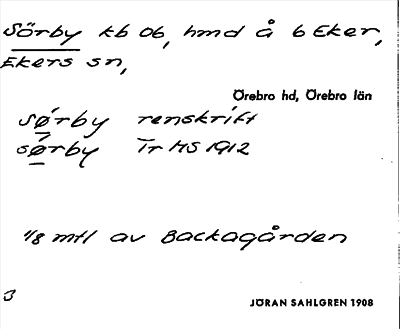 Sörby kb Ob, hmd å 6 Eker,
Ekers sn,
Örebro hd, Örebro län
sø̀rby renskrift
sø̀rby Tr HS 1912
1/8 mtl av Backagården
3
JÖRAN SAHLGREN 1908